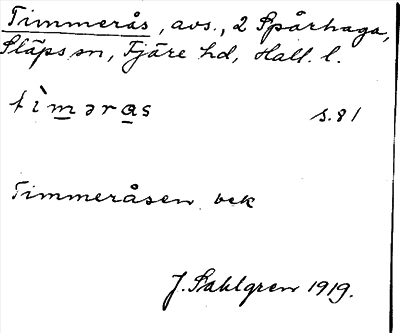 Timmerås, avs., 2 Spårhaga,
Släps sn, Fjäre hd, Hall. l.
tìməras s. 81
Timmeråsen bek
J. Sahlgren 1919.